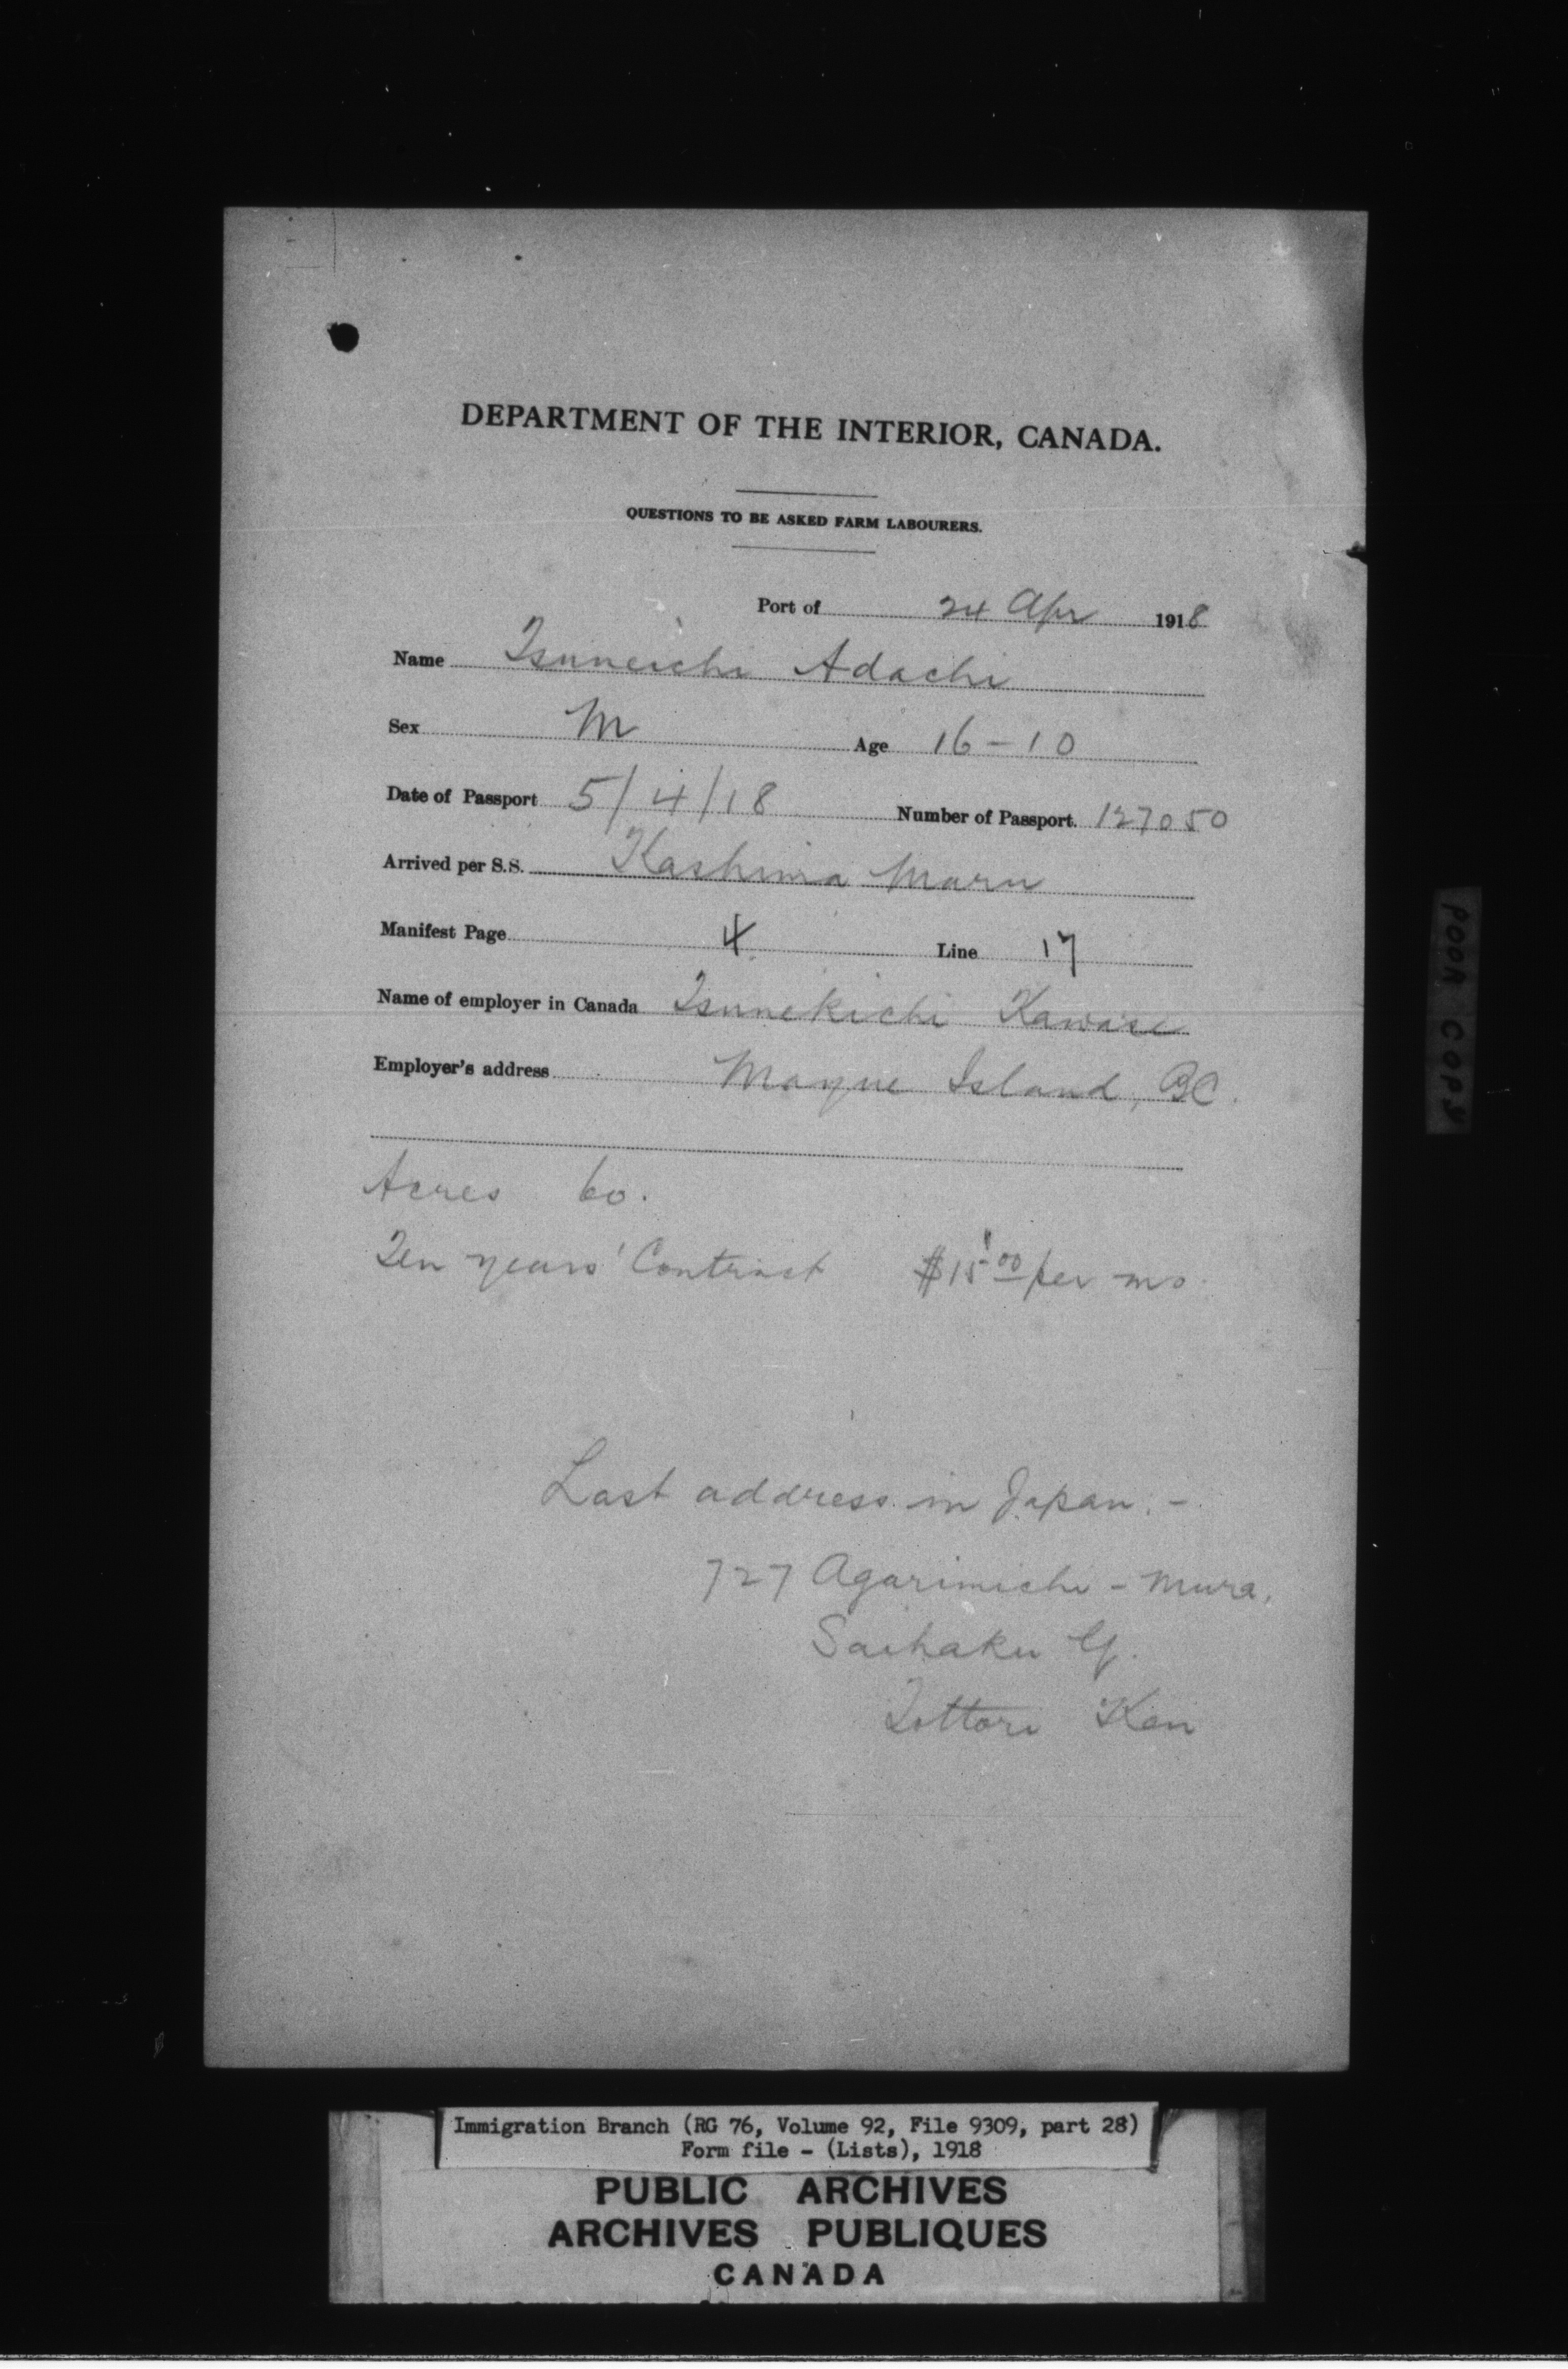 DEPARTMENT OF THE INTERIOR, CANADA.
QUESTIONS TO BE ASKED FARM LABOURERS.
Port of 24 Apr 1918
Name Tsuneichi Adachi
Sex M Age 16-10
Date of Passport 5/4/18 Number of Passport. 127050
Arrived per S.S. Kashima Maru
Manifest Page 4 Line 17
Name of employer in Canada Tsunekichi Kawase
Employer's address Mayne Island, BC.
Acres 60.
Ten years' Contract $15.00 per mo.
Last address in Japan. -
727 Agarimichi - Mura,
Saihaku G.
Tottori Ken
POOR COPY
Immigration Branch (RG 76, Volume 92, File 9309, part 28)
Form file - (Lists), 1918
PUBLIC ARCHIVES
ARCHIVES PUBLIQUES
CANADA